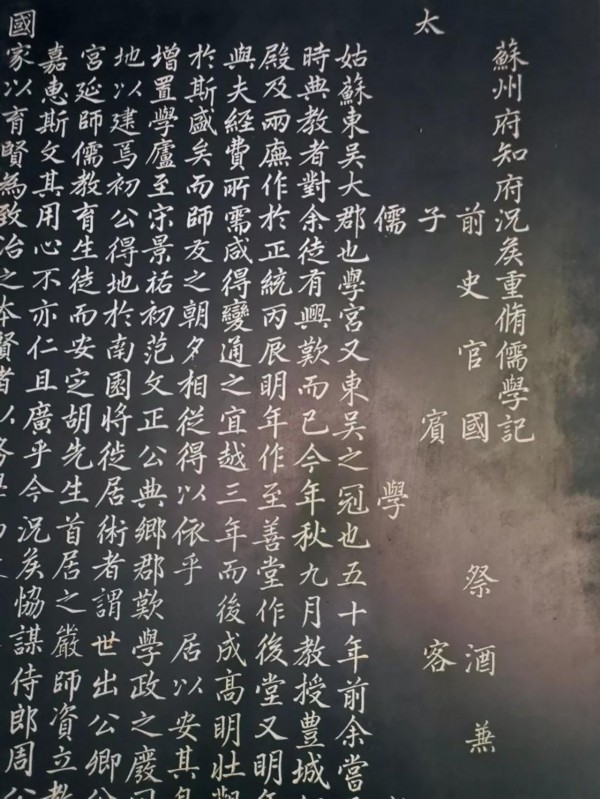 蘇州府知府況矦重脩儒學記
前史官國 祭酒兼
太 子 賓 客
儒 學
姑蘇東吴大郡也學宮又東吴之冠也五十年前余當
時典教者對余徒有興歎而已今年秋九月教授豊城
殿及兩廡作於正統丙辰明年作至善堂作後堂又明年
與夫經費所需咸得變通之宜越三年而後成髙明壯觀
於斯盛矣而師友之朝夕相從得以依乎 居以安其身
增置學廬至宋景祐初范文正公典鄉郡歎學政之廢
地以建焉初公得地於南園將徙居術者謂世出公卿公
宮延師儒教育生徒而安定胡先生首居之嚴師資立教
嘉惠斯文其用心不亦仁且廣乎今 況矦恊謀侍郎周公
國家以育賢為致治之本賢者以務學